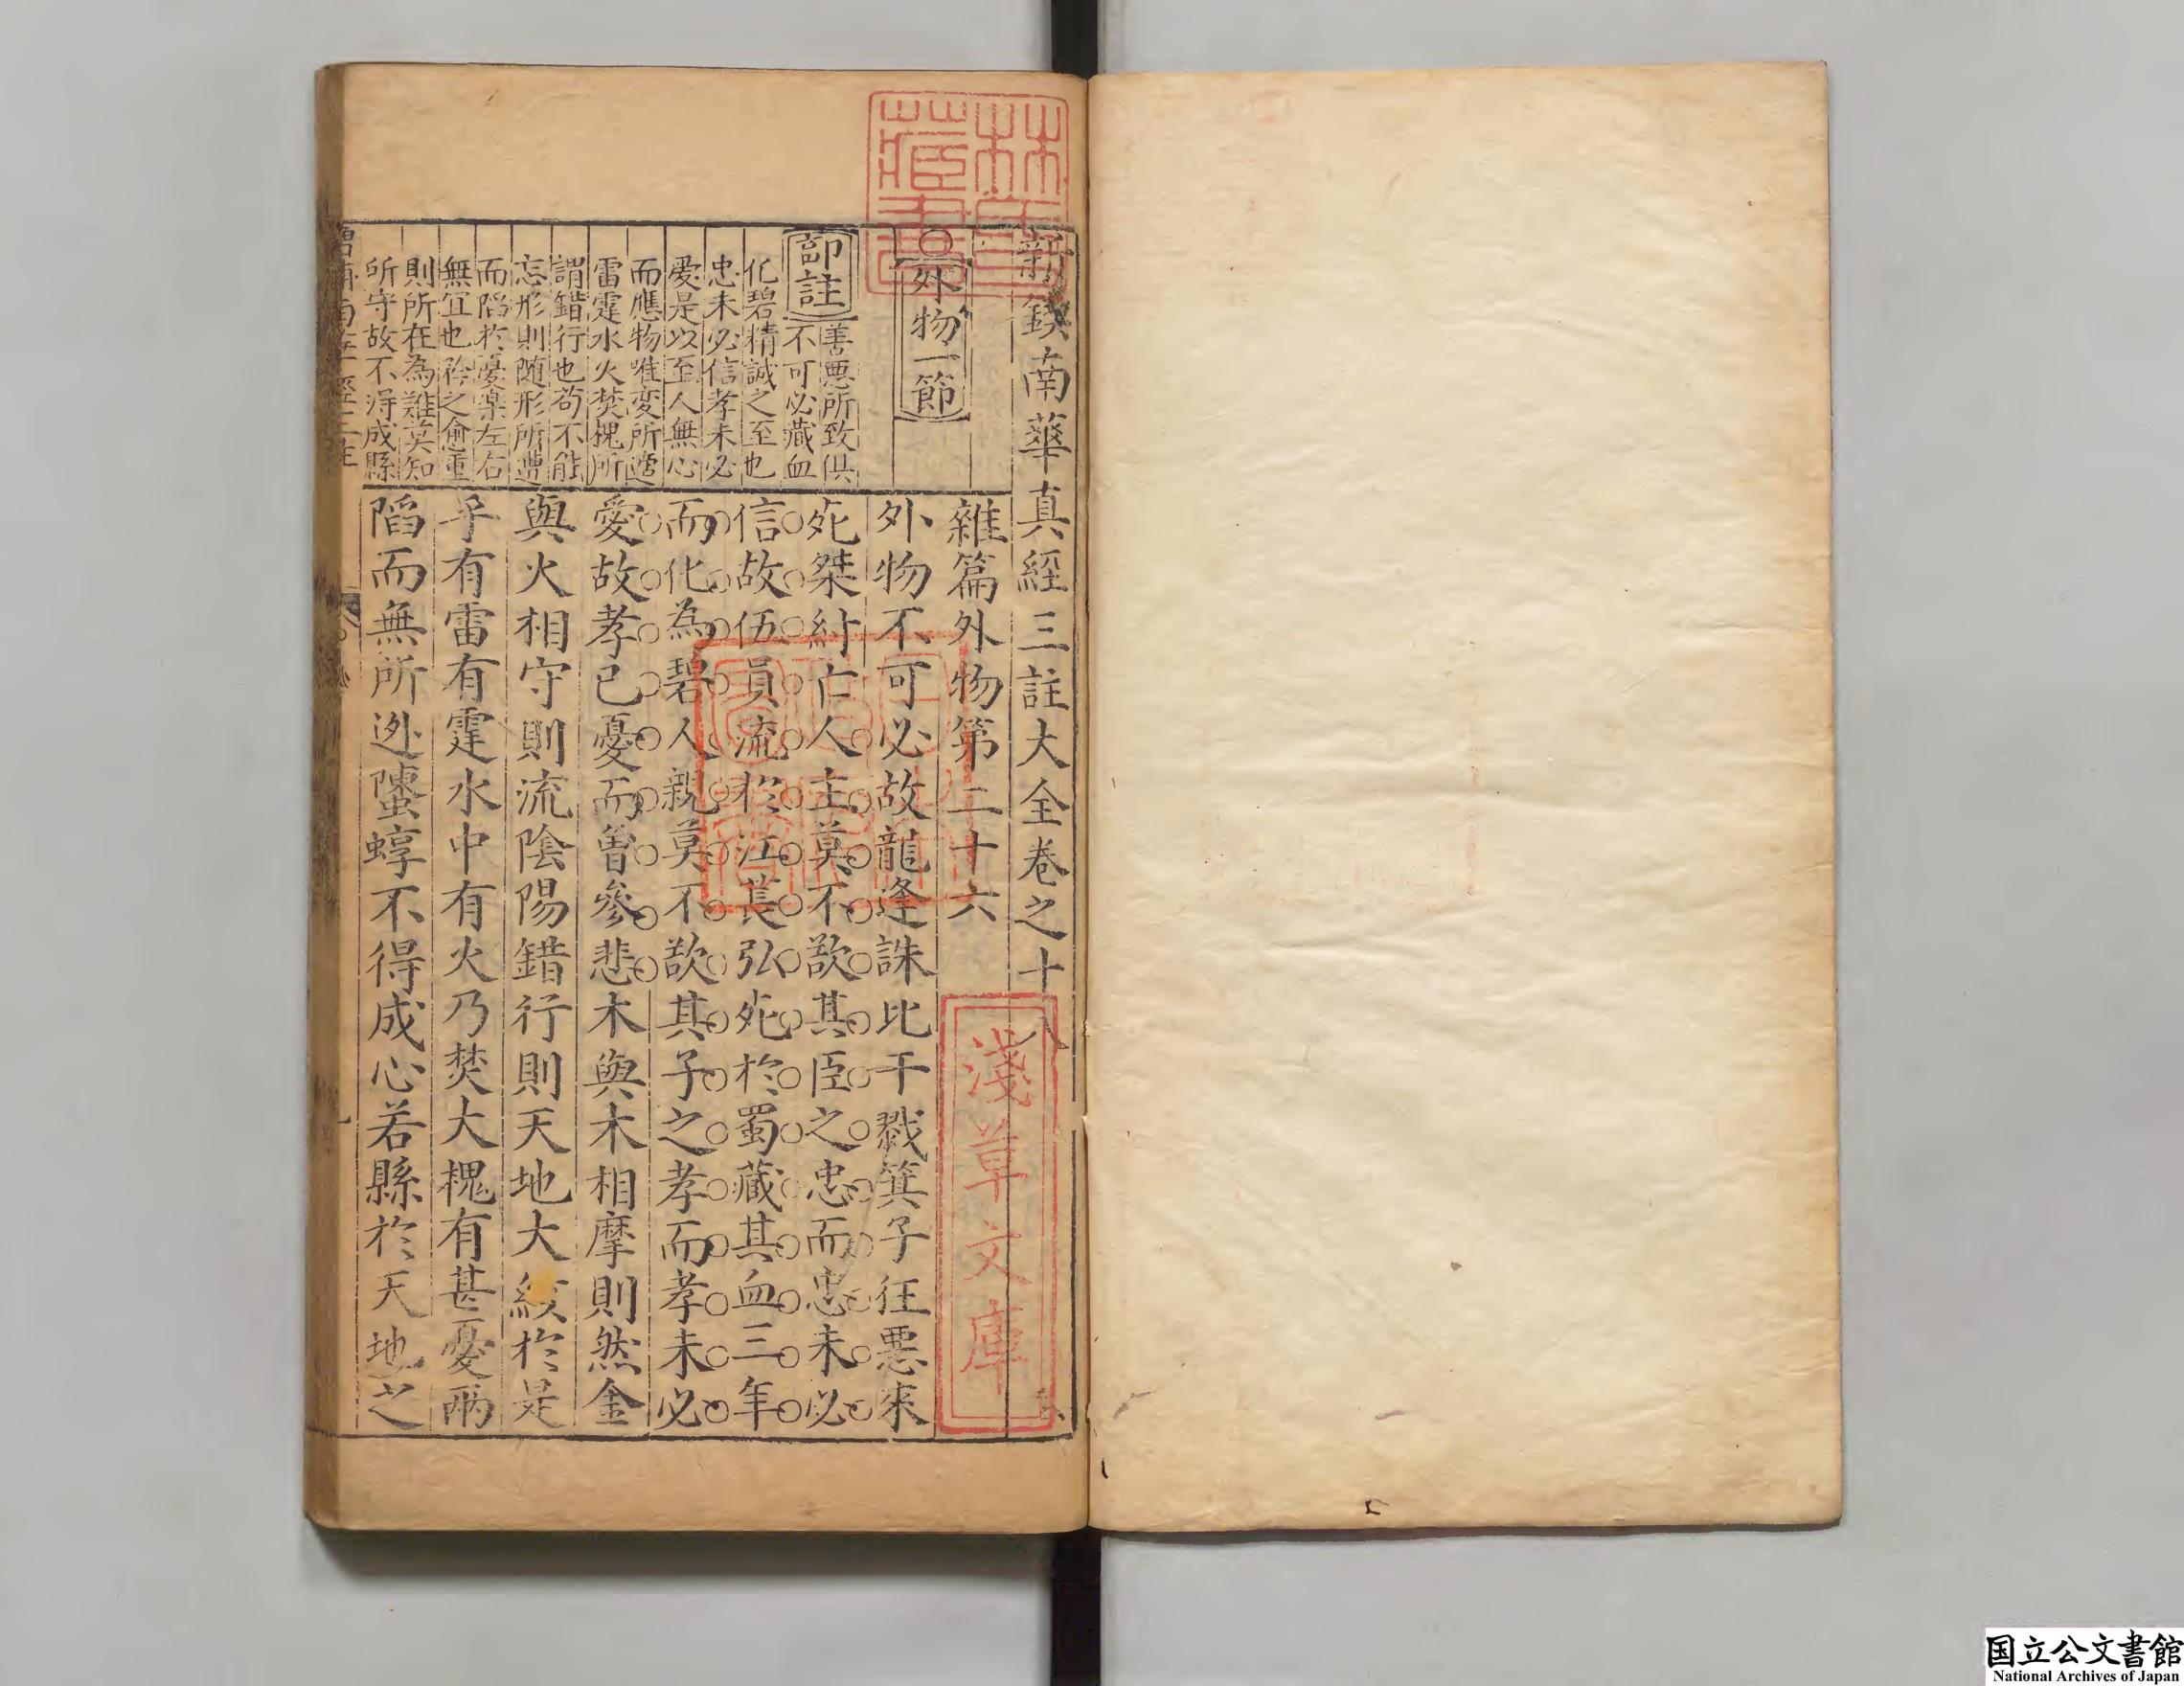 新鋟南華真經三註大全卷之十八
雜篇外物第二十六
○外物一節
郭註
善惡所致俱
不可必藏血
化碧精誠之至也
忠未必信孝未必
愛是以至人無心
而應物唯变所适
雷霆水火焚槐所
謂錯行也苟不能
忘形則随形所遭
而陷於憂楽左右
無宜也矜之愈重
則所在為難莫知
所守故不得成縣
外物不可必故龍逄誅比干戮箕子狂悪來
死桀紂亡人主莫不欲其臣之忠而忠未必
信故伍員流於江萇弘死於蜀藏其血三年
而化為碧人親莫不欲其子之孝而孝未必
愛故孝己憂而曽參悲木與木相摩則然金
與火相守則流陰陽錯行則天地大絯於是
乎有雷有霆水中有火乃焚大槐有甚憂兩
陷而無所逃螴蜳不得成心若縣於天地之
淺草文庫
国立公文書館
National Archives of Japan